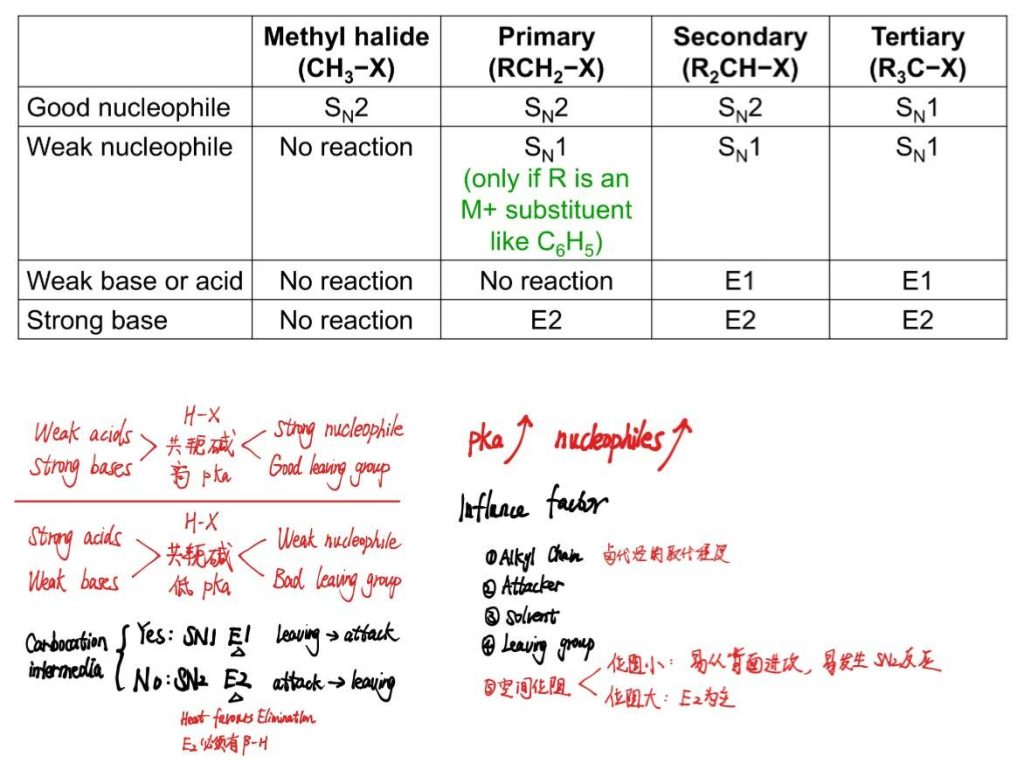 Methyl halide Primary Secondary Tertiary
(CH₃−X) (RCH₂−X) (R₂CH−X) (R₃C−X)
Good nucleophile S_N2 S_N2 S_N2 S_N1
Weak nucleophile No reaction S_N1 S_N1 S_N1
(only if R is an
M+ substituent
like C₆H₅)
Weak base or acid No reaction No reaction E1 E1
Strong base No reaction E2 E2 E2
Weak acids
Strong bases
H-X
共轭碱
高 pka
Strong nucleophile
Good leaving group
Strong acids
Weak bases
H-X
共轭碱
低 pka
Weak nucleophile
Bad leaving group
Carbocation
intermedia
Yes: SN1 E1 leaving → attack
No: SN2 E2 attack → leaving
△
△
Heat favours Elimination
E2必须有β-H
pka↑ nucleophiles↑
Influnce factor
① Alkyl Chain 卤代烃的取代程度
② Attacker
③ Solvent
④ Leaving group
⑤空间位阻
位阻小：易从背面进攻，易发生SN2反应
位阻大：E2为主